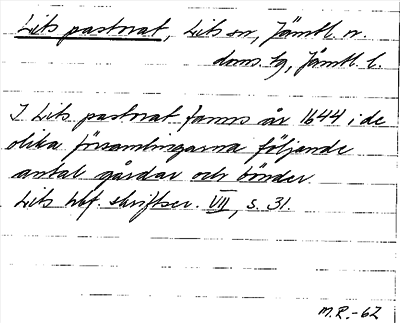 Lits pastorat, Lits sn, Jämtl. n.
doms. sg, Jämtl. l.
I Lits pastorat fanns år 1644 i de
olika församlingarna följande
antal gårdar och bönder.
Lits hbf. skriftser. VII, s. 31.
M.R.-62